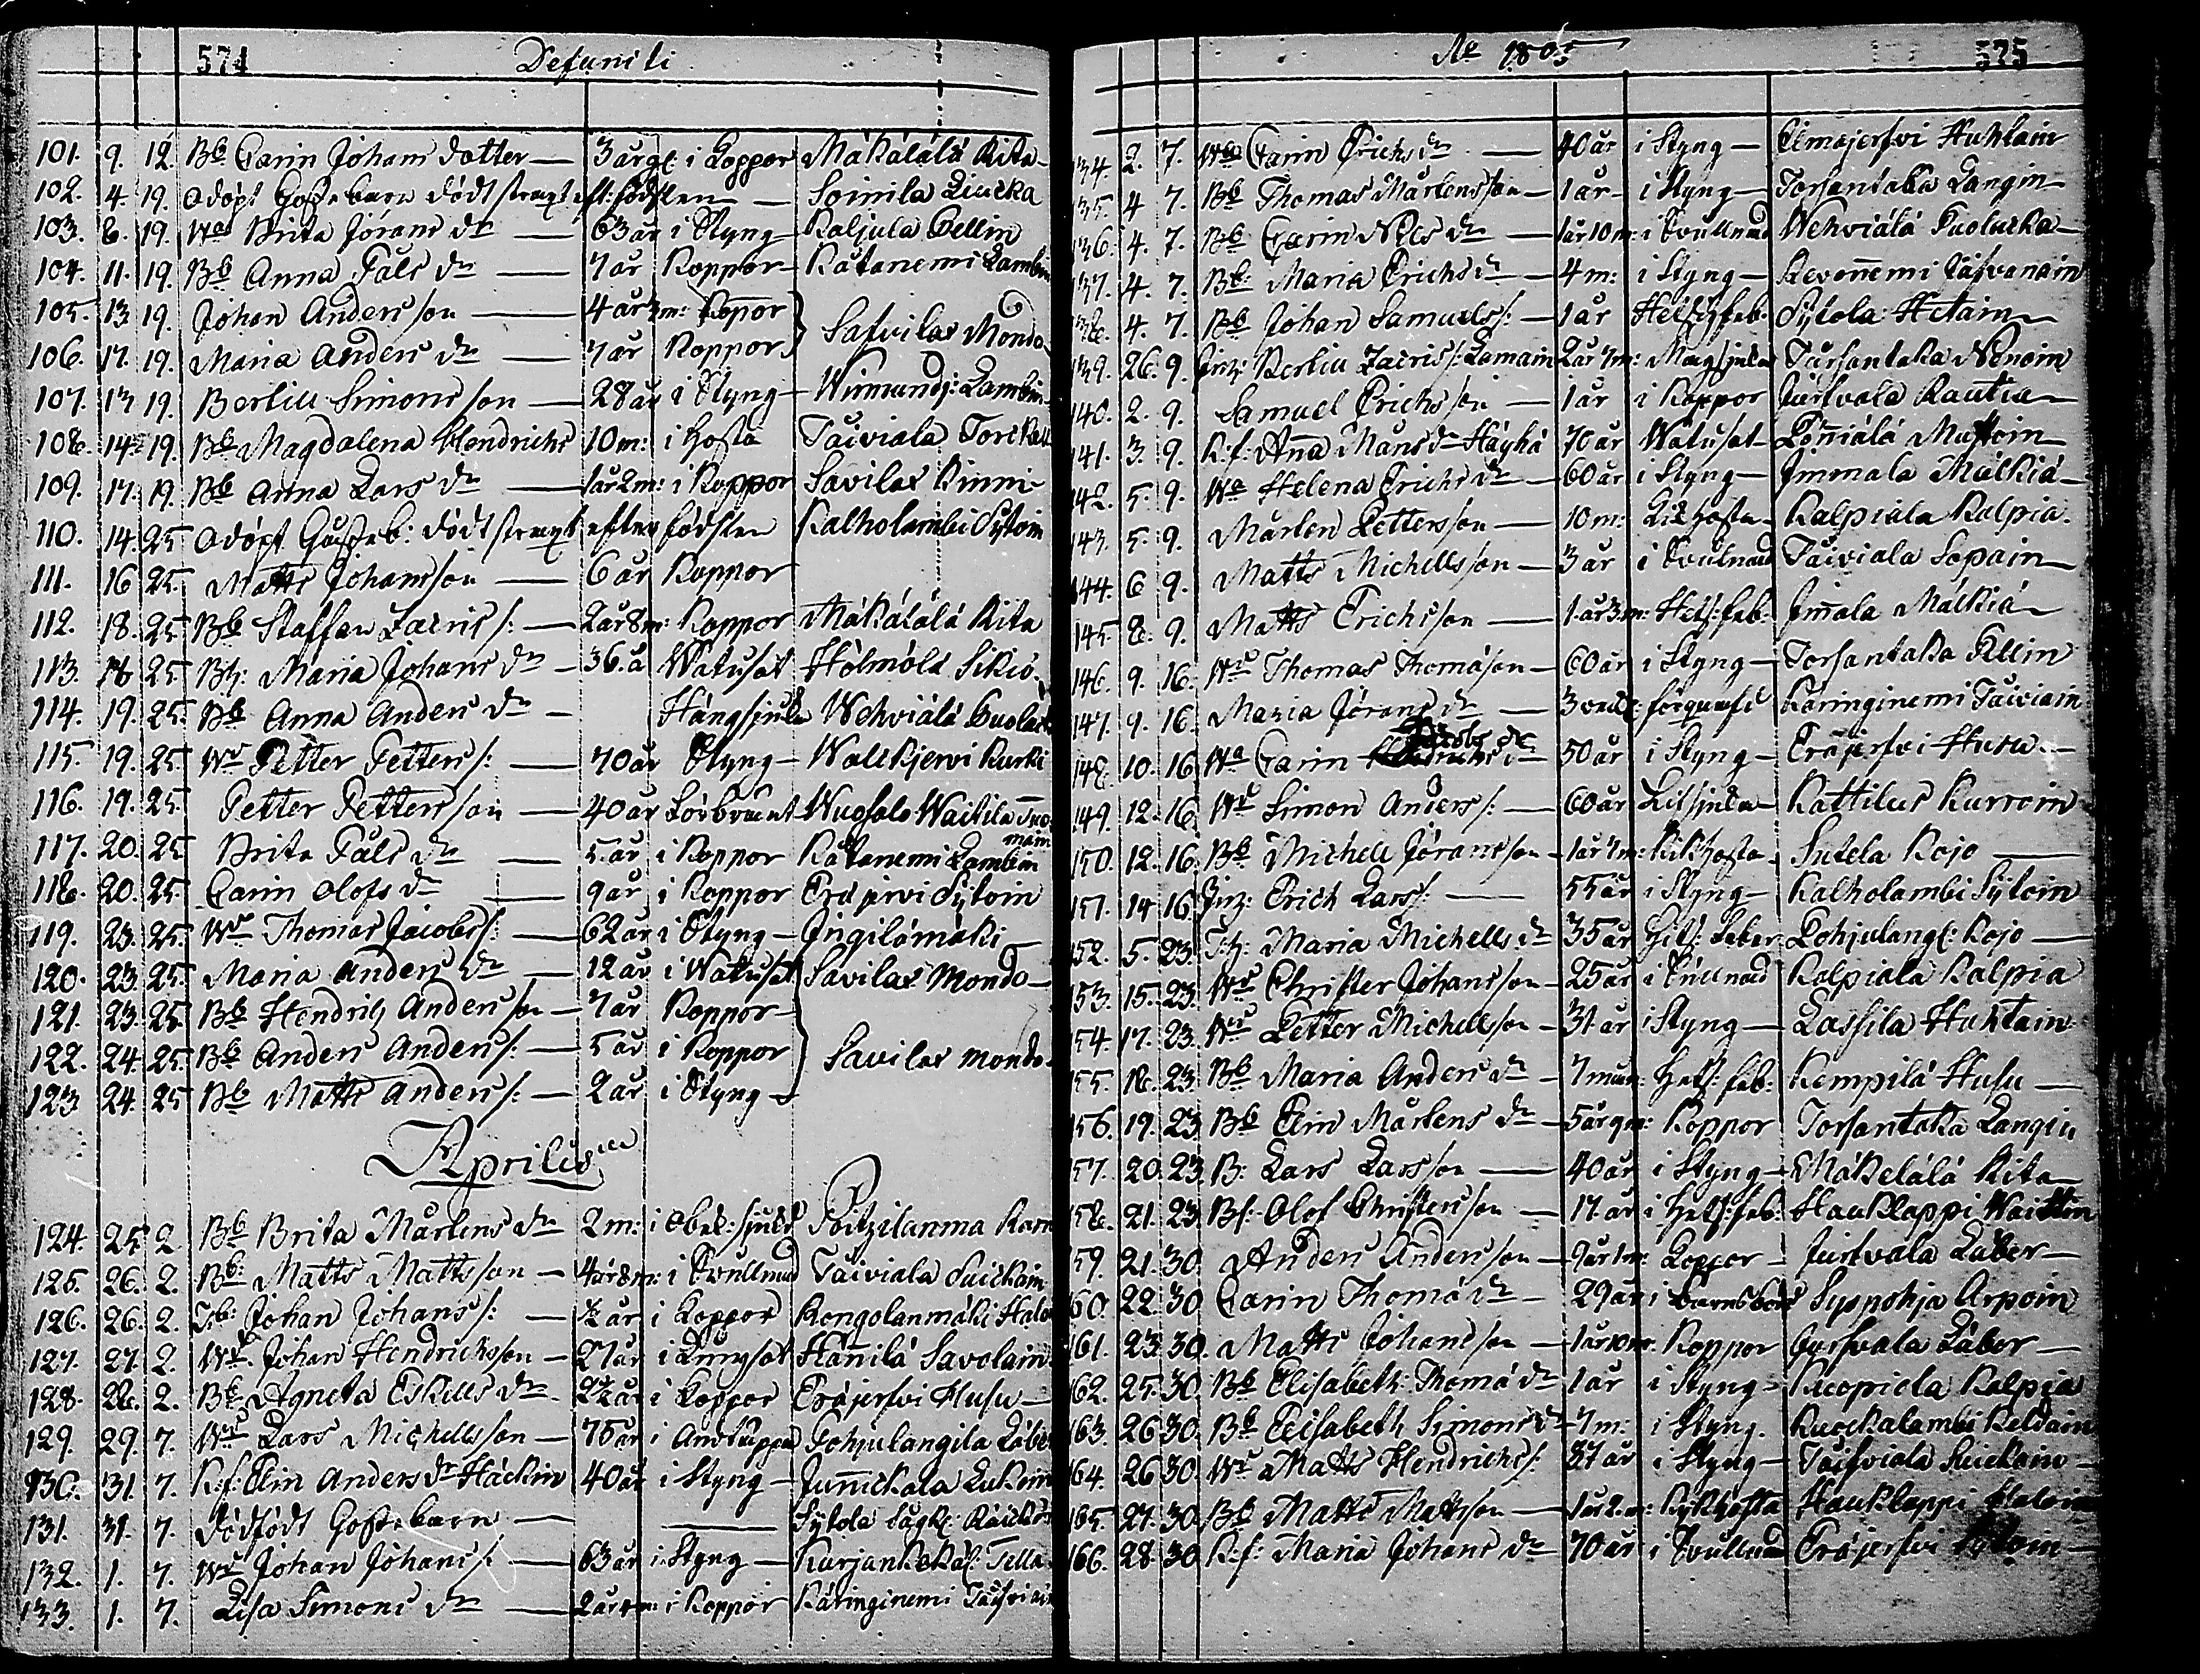 574 Defuncti
101. 9. 12. Bb Carin Johans dotter — 3 år gl: i Koppor Mäkälälä Kita
102. 4. 19. Odöpt Gosse barn dödt straxt eft: födslen — Soinila Liucka
103. 8. 19. Wa Brita Jörans dr — 63 år i Styng — Kaljula Pellin
104. 11. 19. Bb Anna Påls dr — 7 år Koppor — Kätanemi Lambin
105. 13 19. Johan Andersson — 4 år 3m: Koppor
Safvilax Mondo
106. 17. 19. Maria Anders dr — 7 år Koppor
107. 13 19. Bertill Simonsson — 28 år i Styng — Wirmundj: Lambin
108. 14 19. Bb Magdalena Hendrichs 10 m: i Hosta Taiviala Torckell
109. 17. 19. Bb Anna Lars dr — 1 år 2 m: i Koppor Savilax Kinni
110. 14. 25. Odöpt Gosseb: dödt straxt efter födslen Kalholambi Sÿtoin
111. 16 25. Matts Johansson — 6 år Koppor
112. 18. 25. Bb Staffan Zacris s: — 2 år 8 m: Koppor Mäkälälä Kita
113. 18 25. Bh: Maria Johans dr — 36. å Watusot Hölmölä Sikiö
114. 19. 25. Bb Anna Anders dr — Hängsjuka Wehviälä Puolack
115. 19. 25. Wr Petter Petters s: — 70 år Styng — Walkjervi Kurki
116. 19. 25. Petter Pettersson — 40 år Wugsalo Waitila Tuo
main
117. 20. 25. Brita Påls dr — 5 år i Koppor Kätanemi Lambin
118. 20. 25. Carin Olofs dr — 9 år i Koppor Eräjervi Sÿtoin
119. 23. 25. Wr Thomas Jacobs s: — 62 år i Styng — Ingilämäki
120. 23. 25. Maria Anders dr — 12 år i Watusot Savilax Mondo
121. 23. 25. Bb Hendrich Andersson — 7 år Koppor
122. 24. 25. Bb Anders Anders s: — 5 år i Koppor Savilax Mondo
123. 24. 25 Bb Matts Anders s: — 2 år i Styng
Aprilis
124. 25 2. Bb Brita Mårtens dr 2 m: i obek: sjukd Poitzilanma Ram
125. 26. 2. Bb: Matts Mattsson — 4 år 8 m: i Svullnad Taiviala Suickain
126. 26. 2. Johan Johans s: — ½ år i Koppor Kongolanmäki
127. 27. 2. Wr Johan Hendrichsson — 27 år i Lungsot Hännilä Savolain
128. 28. 2. Bb Agneta Eskells dr 2½ år i Koppor Eräjerfvi Husu
129. 29. 7. Wr Lars Michellsson — 75 år i Pohjulangila Läber
130. 31. 7. K:f: Elin Anders dr Häckin 40 år i Styng — Junickala Lukoin
131. 31. 7. Dödfödt Gosse barn — Sÿtola
132. 1. 7. Wr Johan Johans s: — 63 år i Styng — Tella
133. 1. 7. Lisa Simons dr — i Koppor Käringinemi Taifviain
Ao 1805 575
134. 2. 7. Wa Carin Erichs dr — 40 år i Styng — Elmajerfvi Huhtain
135. 4 7. Bb Thomas Mårtensson — 1 år — i Styng — Torsantaka Langin
136. 4. 7. Bb Carin Nils dr — 1 år 10 m: i Svullnad Wehviälä Puolacka
137. 4. 7. Bb: Maria Erichs dr — 4 m: i Styng — Revonnemi Taifvanain
138. 4. 7. Bb Johan Samuels s: — 1 år Hetsig feb. Sÿtola Hetain
139. 26. 9. Inh: Bertill Zacris s: Lamain 2 år 7 m: Magsjuka Torsantaka Nenoin
140. 2. 9. Samuel Erichsson — 1 år i Koppor Jurfvala Rautia
141. 3. 9. K:f: Anna Måns dr Häyhä 70 år Watusot — Pönniälä Mattoin
142. 5. 9. Wa Helena Erichs dr — 60 år i Styng — Immala Mälkiä
143. 5. 9. Mårten Pettersson — 10 m: Kikhosta — Kalpiala Kalpia
144. 6 9. Matts Michellsson — 3 år i Svullnad Taiviala Sopain
145. 8. 9. Matts Erichsson — 1. år 3 m: Hets: feb: Immala Mälkiä
146. 9. 16. Wr Thomas Thomasson — 60 år i Styng — Torsantaka Pellin
147. 9. 16. Maria Jörans dr — Käringinemi Taiviain
148. 10. 16. Wa Carin Jacobs dr — 50 år i Styng — Eräjerfvi Husu
149. 12. 16. Wr Simon Anders s: — 60 år Kattilus Kurroin
150. 12. 16. Bb Michell Jöransson — 1 år 7 m: Kikhosta — Sutela Kojo
151. 14 16. Inh: Erich Lars s: — 55 år i Styng — Kalholambi Sÿtoin
152. 5. 23. Maria Michells dr 35 år Hits: Feber Pohjulangl: Kojo
153. 15. 23. Wr Christer Johansson — 25 år i Svullnad Kalpiala Kalpia
154. 17. 23. Wr Petter Michellsson — 31 år i Styng — Lassila Huhtain
155. 18. 23 Bb Maria Anders dr — 7 mån: Hets: feb: Kempilä Husu
156. 19. 23 Bb Elin Mårtens dr — 5 år 9 m: Koppor Torsantaka Langin
157. 20. 23. B: Lars Larsson — 40 år i Styng — Mäkelälä Kita
158. 21. 23. Bs: Olof Christersson — 17 år i Hets: feb: Haukkappi Waittin
159. 21. 30. Anders Andersson — 9 år 1 m: Koppor — Jurfvala Läber
160. 22. 30. Carin Thoma dr — 29 år i barnsbörd Syspohja Arpoin
161. 23 30. Matts Johansson — 1 år 10 m: Koppor Jurfvala Läber
162. 25. 30. Bb Elisabeth Thoma dr 1 år i Styng — Kalpia
163. 26 30. Bb Elisabeth Simons dr 7 m: i Styng. Ruockalambi Keldain
164. 26 30. Wr Matts Hendrichs s: 37 år i Styng — Taifviala Suickain
165. 27. 30. Bb Matts Mattsson — 1 år 2. m: Kikhosta Haukkappi
166. 28. 30. K:f: Maria Johans dr 70 år i Svullnad Eräjerfvi Sÿtoin